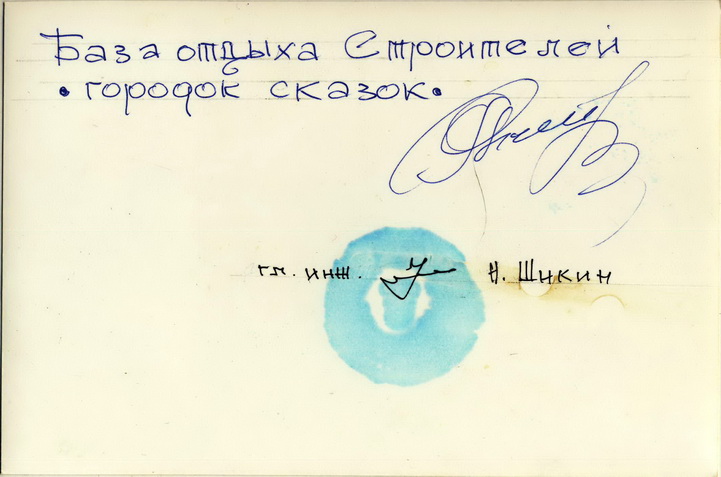 База отдыха Строителей
• городок сказок•
гл. инж. Н. Шикин